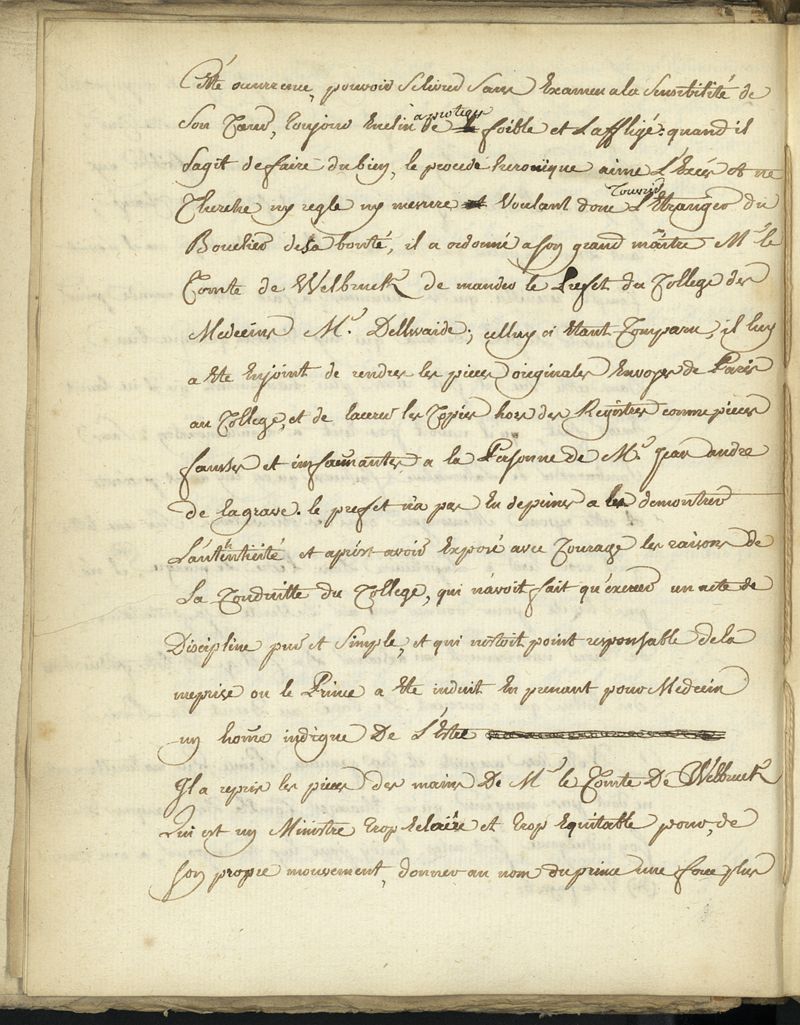 Cette ocurrence, pouvoit se livrer sans Examen a la sensibilité de
son Cœur, toujour Enclin a proteger le foible et L'affligé: quand il
s'agit de faire du bien, le procede heroïque aime L'Excés et ne
Cherche ny regle ny mesure Voulant donc Couvrir L'Etranger du
Bouclier de sa bonté, il a ordonné a son grand maître Mr le
Comte de Welbruck de mander le Prefet du College des
Medecins Mr. Dellwaide; celluy ci étant Comparu, il luy
a été Enjoint de rendre les pieces originales Envoyés de Paris
au College, et de lacerer les Copies hors des Registres comme pieces
fausses et infamantes a la Personne de Mr. Jean andre
de lagrave. le prefet n'a pas eu de peine a les demontrer
L'autenthicité et aprést avoir Exposé avec Courage les raisons de
La Conduitte du College, qui n'avoit fait qu'exercer un acte de
Discipline pur et simple, et qui n'étoit point responsable de la
meprise ou le Prince a été induit En prenant pour Medecin
un home indigne De L'Estre
Il a repris les pieces des mains De Mr le Comte De Welbruck
Qui est un Ministre trop Eclairé et trop Equitable pour, de
son propre mouvement, donner au nom du prince une force plus